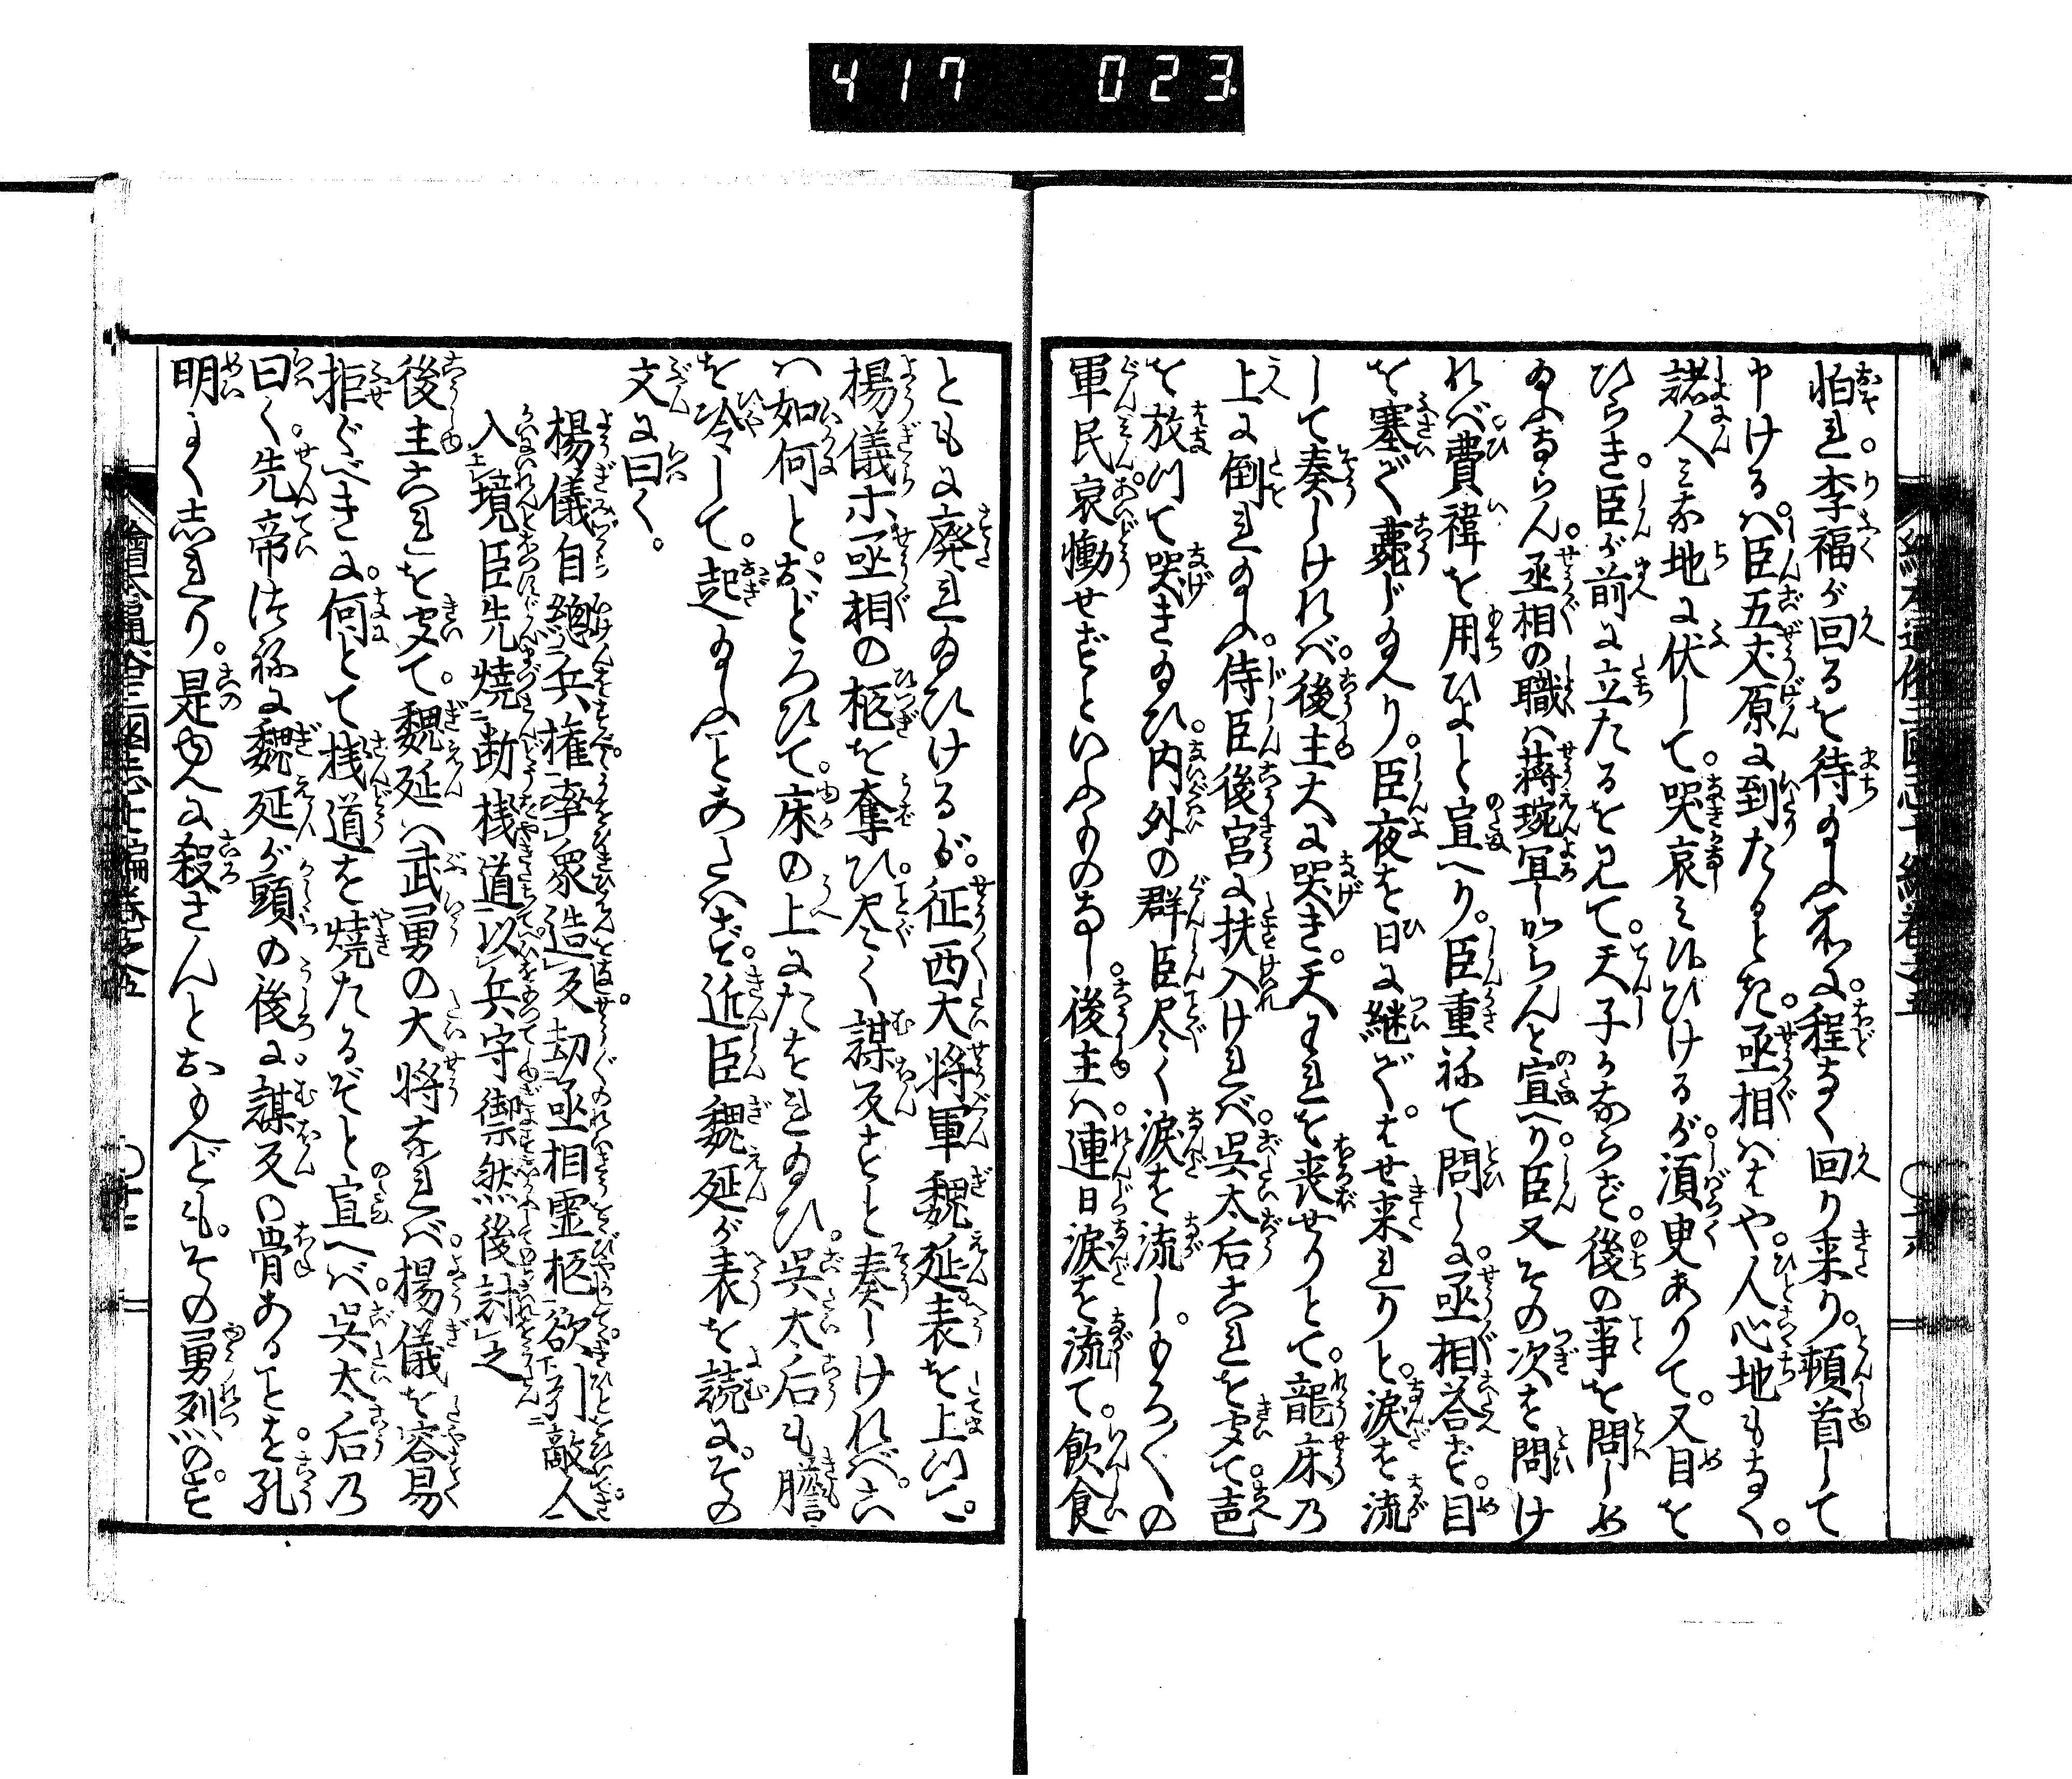 417 023
怕れ李福が回るを待のふ所に。程なく回り来り。頓首して
申ける八臣五丈原に到たるとき。丞相ははや人心地もなく。
諸人みな地に伏して。哭哀みゐひけるが。須臾ありて。又目を
ひらき。臣が前に立たるを見て。天子かならず。後の事を問しめ
ゐふならん。丞相の職は蒋琬宜しからんと宣へり。臣又その次を問け
れバ。費禕を用ひよと宣へり。臣重ねて問しに。丞相答ず。目
を塞ぎて薨じゐへり。臣夜を日に継で。はせ来れりと。涙を流
して奏しけれバ。後主大に哭き。天われを喪せりとて。龍床の
上に倒れゐふ。侍臣後宮に扶入けれバ。呉太后これを聞て声
を放つて哭きゐひ。内外の群臣尽く涙を流し。もろ〱の
軍民哀慟せずといふものなし。後主ハ連日涙を流て。飲食
ともに廃れゐひけるが。征西大将軍魏延表を上つて。
楊儀ホ丞相の柩を奪ひ。尽く謀反すと奏しけれバ。こ
ハ如何と。おどろひて。床の上にたをれゐひ。呉太后も膽
を冷して。起ゐふことあたハず。近臣魏延が表を読に。その
文に曰く。
楊儀自總兵権率衆造反劫丞相霊柩欲引敵人
入境臣先焼断桟道以兵守禦然後討之
後主これを聞て。魏延ハ武勇の大将なれバ。楊儀を容易
拒ぐべきに。何とて桟道を焼たるぞと宣へバ。呉太后の
曰く。先帝つねに魏延が頭の後に。謀反の骨あることを。孔
明よくしれり。是ゆへに殺さんとおもへども。その勇烈のす